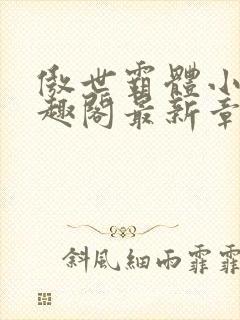 傲世霸體小
趣閣最新章
斜風細雨霏霏